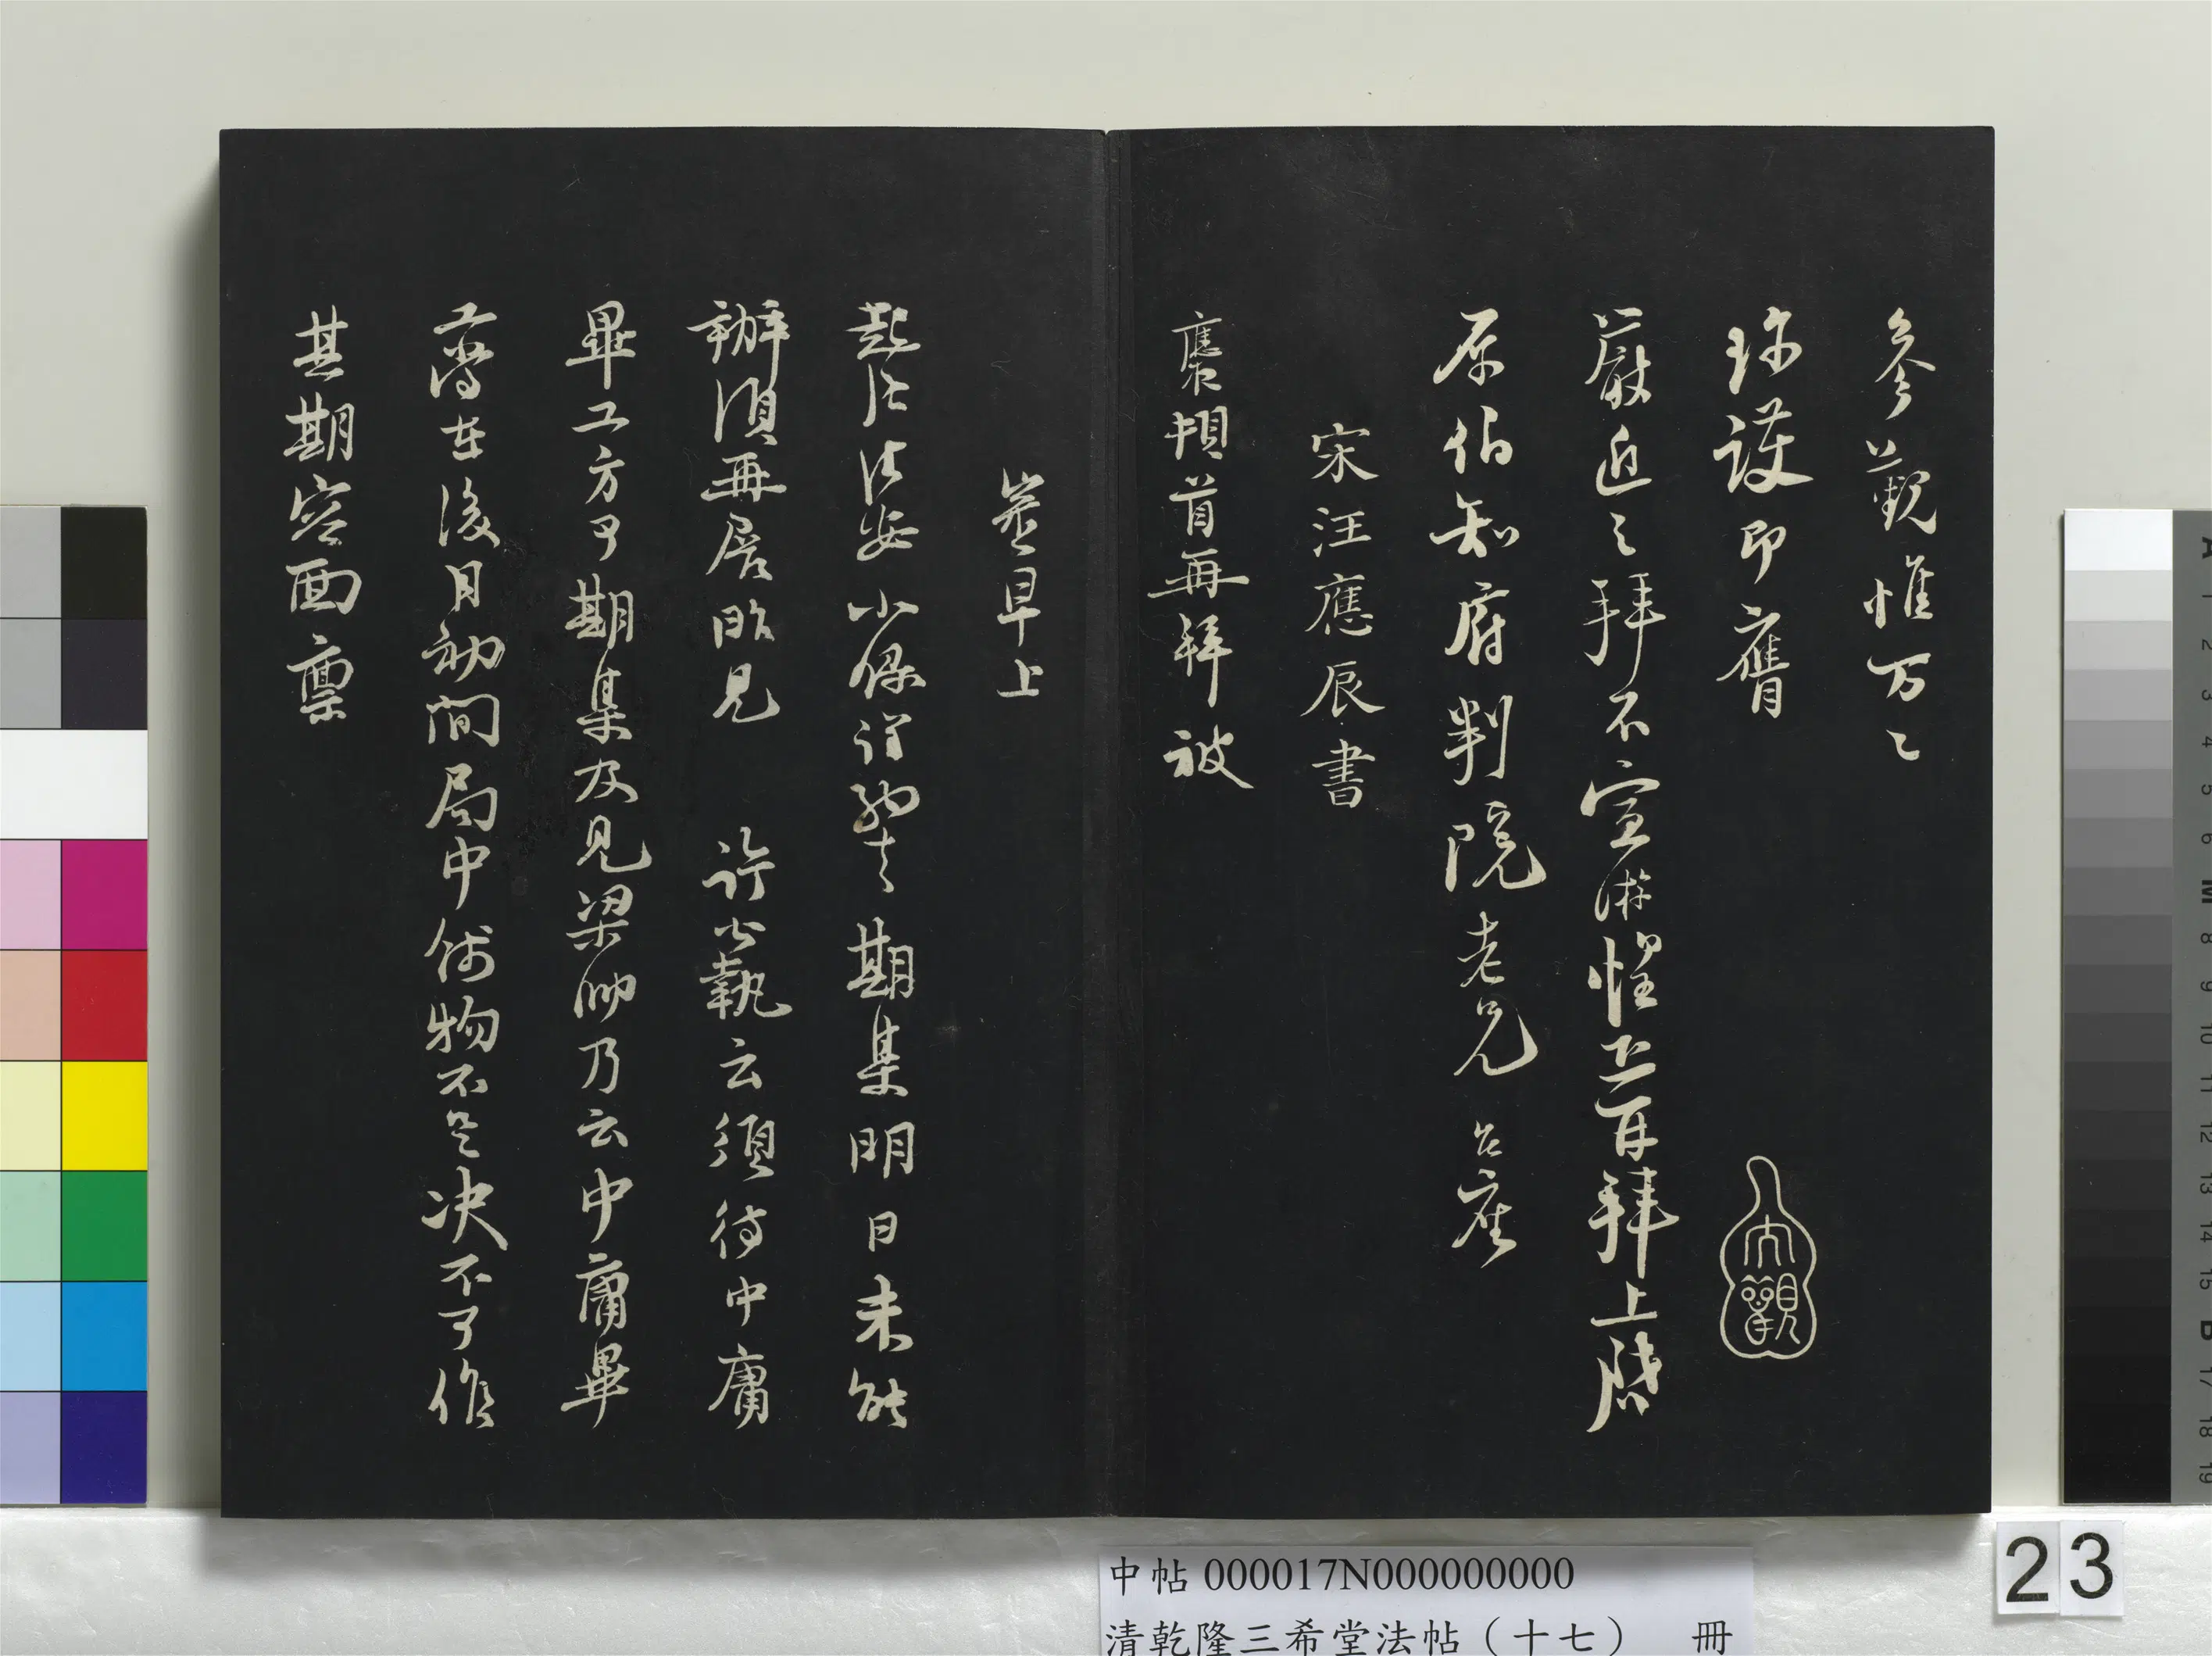 參觀惟万〻
珎護即膺
嚴近〻拜不宣游惶恐百拜上啓
原伯知府判院老兄台座
宋汪應辰書
應辰頓首再拜被
答早上
起居佳安少保得
期集明日未能
辦須再展昨見
許公執云須待中庸
畢工方可期集及見梁帥乃云中庸畢
工當在後月初間局中錢物不足決不可作
其期容面稟
大觀
中帖 000017N000000000
清乾隆三希堂法帖（十七） 冊
23